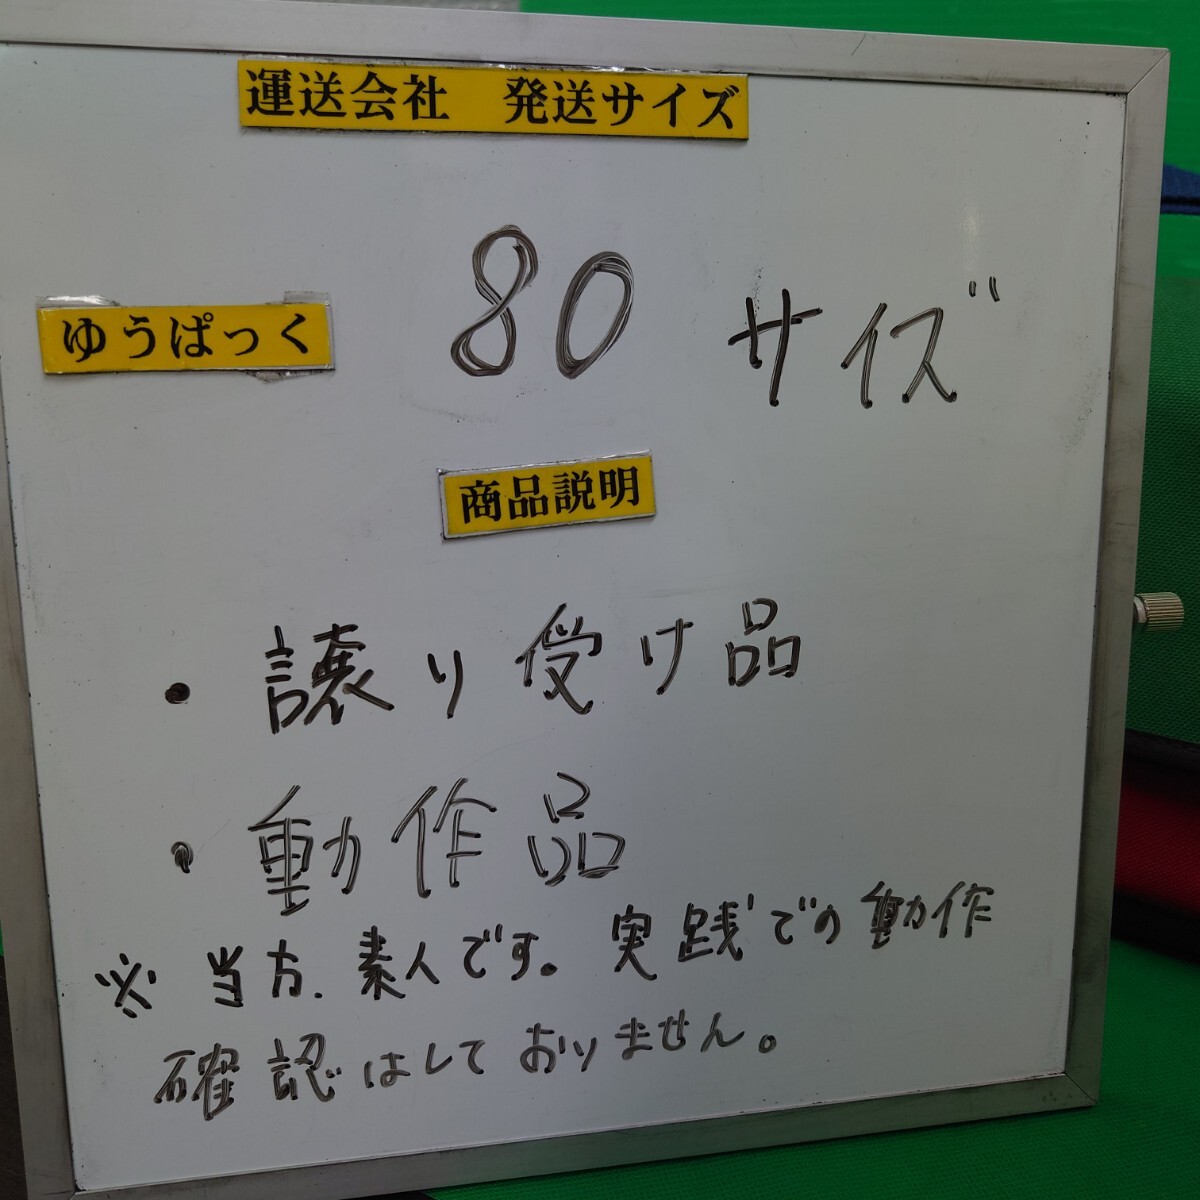 運送会社　発送サイズ
ゆうぱっく 80 サイズ
商品説明
・譲り受け品
・動作品
※当方、素人です。実践での動作
確認はしておりません。